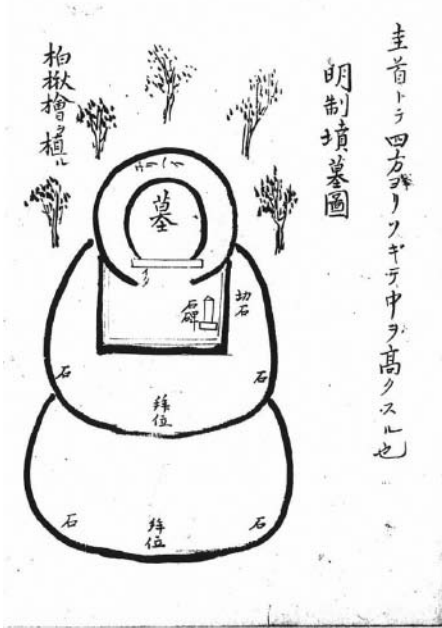 圭首トテ四方ヨリソギテ中ヲ高クスル也
明制墳墓圖
柏楸檜ヲ植ル
墓
石碑
切石
石
石
拜位
石
石
拜位